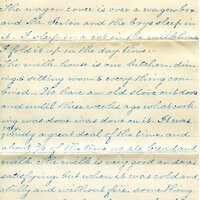 The wagon cover is over a wagon box
and Mr. Penon and the boys sleep in
it. I sleep on a cot in the milk house
I fold it up in the day time.
The milk-house is our kitchen, din-
ing & sitting room & everything com-
bined. We have an old stove outdoors
and until three weeks ago what cook-
ing was done was done on it. It was
windy a great deal of the time, and
about ⅔ of the time we ate bread and
milk. The milk is very good and was
satisfying, but when it was cold and
cloudy and without fire, something